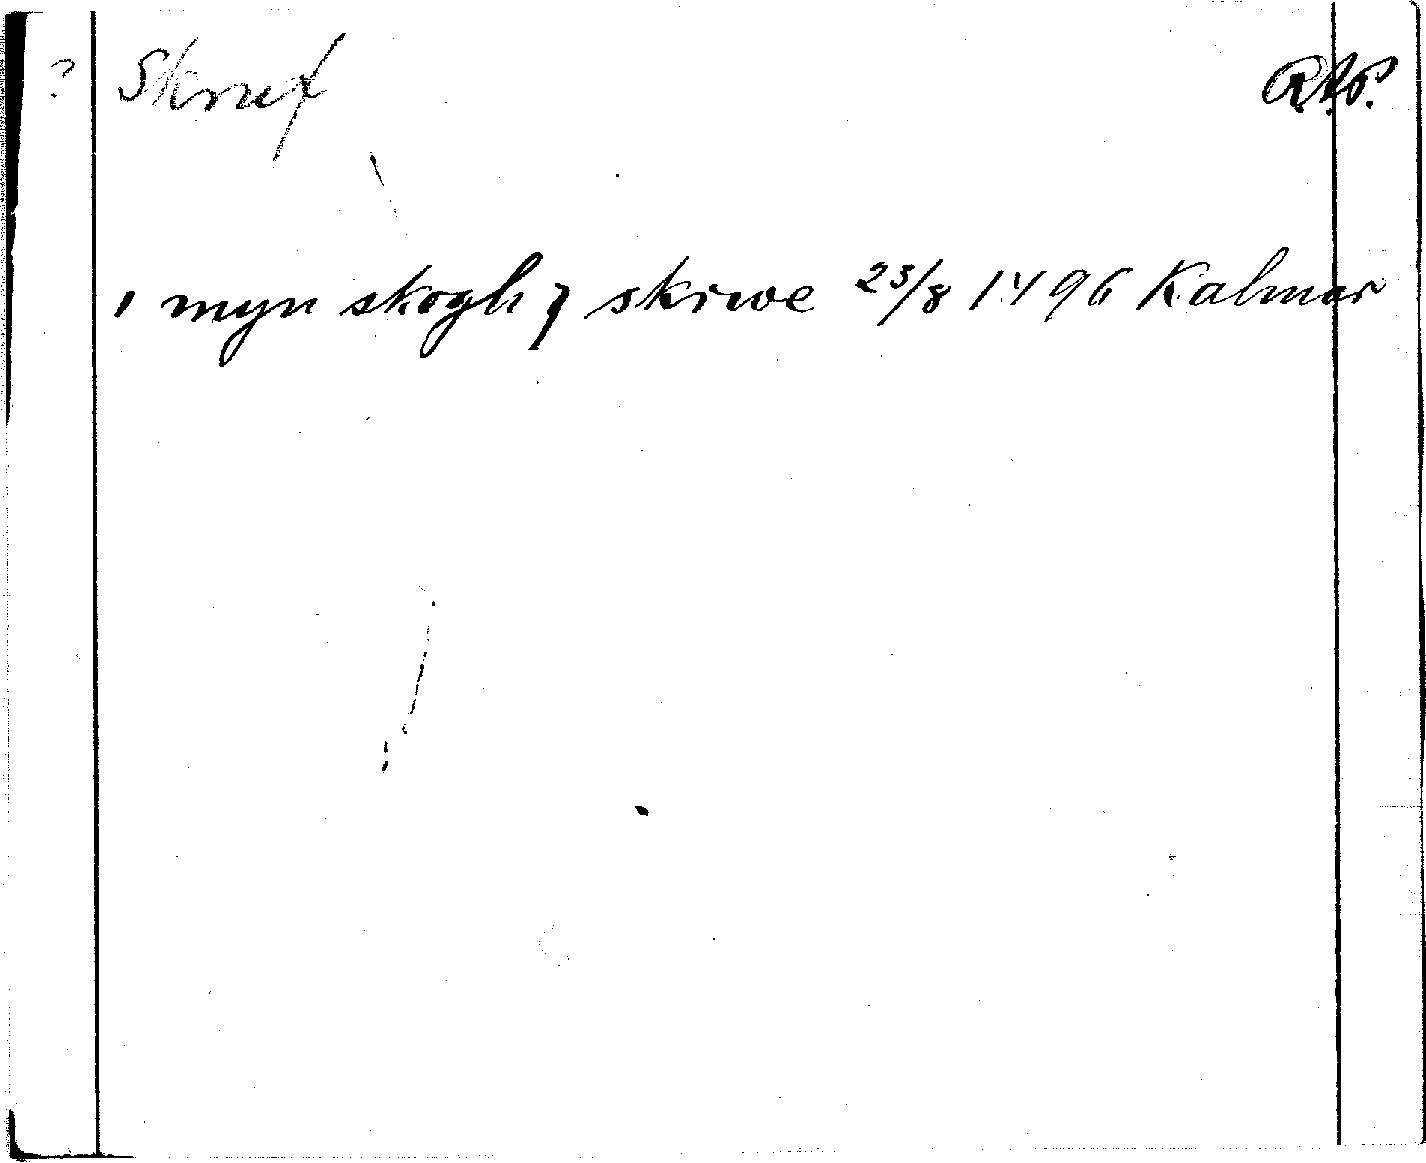 ? Skruf R.A.P.
i myn skogh j skrwe 23/8 1496 Kalmar